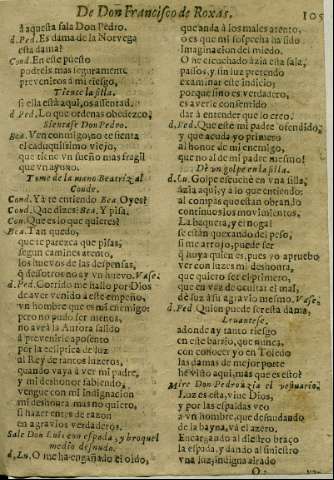 De Don Francisco de Roxas. 105
à aquesta sala Don Pedro.
d.Ped. Es dama de la Noruega
esta dama?
Cond. En este puesto
podreis mas seguramente
preveniros à mi riesgo,
Tienta la silla.
si ella està aqui, os assentad.
d.Ped. Lo que ordenas obedezco.
Sientase Don Pedro.
Bea. Ven conmigo, no se sienta
el caduquissimo viejo,
que tiene vn sueño mas fragil
que vn ayuno.
Tome de la mano Beatriz al
Conde.
Cond. Ya te entiendo. Bea. Oyes?
Cond. Que dizes? Bea. Y pisa,
Con. Que es lo que quieres?
Bea. Tan quedo,
que te parezca que pisas,
segun camines atento,
los huevos de las despensas,
q̃ desotros no ay vn huevo. Vase.
d.Ped. Corrido me hallo por Dios
de aver venido à este empeño,
vn hombre que es mi enemigo:
pero no pudo ser menos,
no avrà la Aurora salido
à prevenirle aposento
por la ecliptica de luz
al Rey de tantos luzeros,
quando vaya à ver mi padre,
y mi deshonor sabiendo,
vengue con mi indignacion
mi deshonra mas no quiero,
si hazer entes de razon
en agravios verdaderos.
Sale Don Luis con espada, y broquel
medio desnudo.
d.Lu. O me ha engañado el oìdo,
que anda à los males atento,
o es que mi sospecha ha sido
imaginacion del miedo.
O he escuchado àzia esta sala,
passos, y sin luz pretendo
examinar este indicio;
porque sino es verdadero,
es averle consentido
dar à entender que lo creo.
d.Ped. Que este mi padre ofendido,
y que acuda yo primero
al honor de mi enemigo,
que no al de mi padre mesmo!
Dè vn golpe en la silla.
d.Lu. Golpe escuchè en vna silla,
àzia aqui, y à lo que entiendo:
al compàs que estan obran lo
continuos los movimientos.
La baqueta, y el nogal
se estàn quexando del peso,
si me arrojo, puede ser
q̃ huya quien es, pues yo apruebo
ver con luzes mi deshonra,
que quiero ser el primero,
que en vez de ocultar el mal,
dè luz à su agravio mesmo. Vase.
d.Ped. Quien puede ser esta dama,
Levantese.
adonde ay tanto riesgo
en este barrio, que nunca,
con conocer yo en Toledo
las damas de mejor porte
he visto aqui, mas que es esto?
Mire Don Pedro àzia el vestuario.
Luz es esta, vive Dios,
y por las espaldas veo
vn hombre, que desnudando
de la bayna, và el azero.
Encargando al diestro braço
la espada, y dando al siniestro
vna luz, indigna airado
O